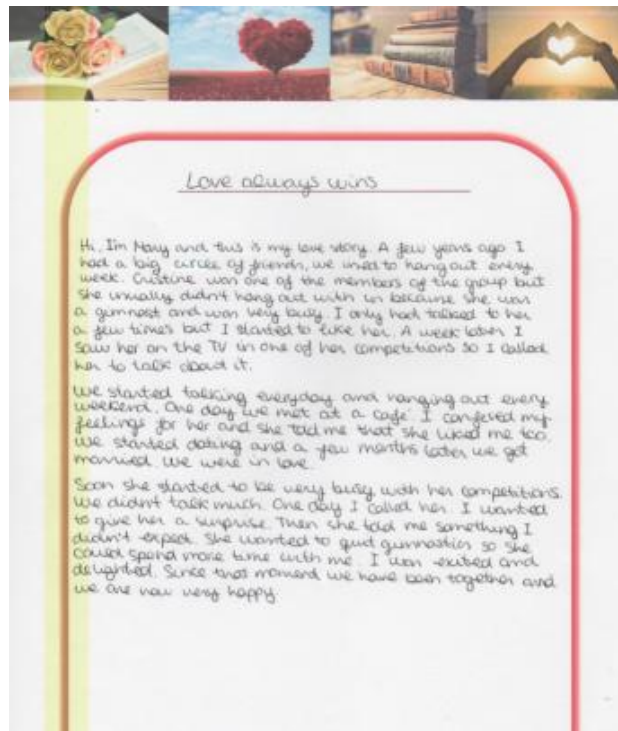 Love always wins
Hi, I'm Mary and this is my love story. A few years ago I
had a big circle of friends, we used to hang out every
week. Cristine was one of the members of the group but
she usually didn't hang out with us because she was
a gymnast and was very busy. I only had talked to her
a few times but I started to like her. A week later I
saw her on the TV in one of her competitions so I called
her to talk about it.
We started talking everyday and hanging out every
weekend. One day we met at a café. I confesed my
feelings for her and she told me that she liked me too.
We started dating and a few months later we got
married. We were in love.
Soon she started to be very busy with her competitions.
We didn't talk much. One day I called her. I wanted
to give her a surprise. Then she told me something I
didn't expect. She wanted to quit gymnastics so she
could spend more time with me. I was exited and
delighted. Since that moment we have been together and
we are now very happy.